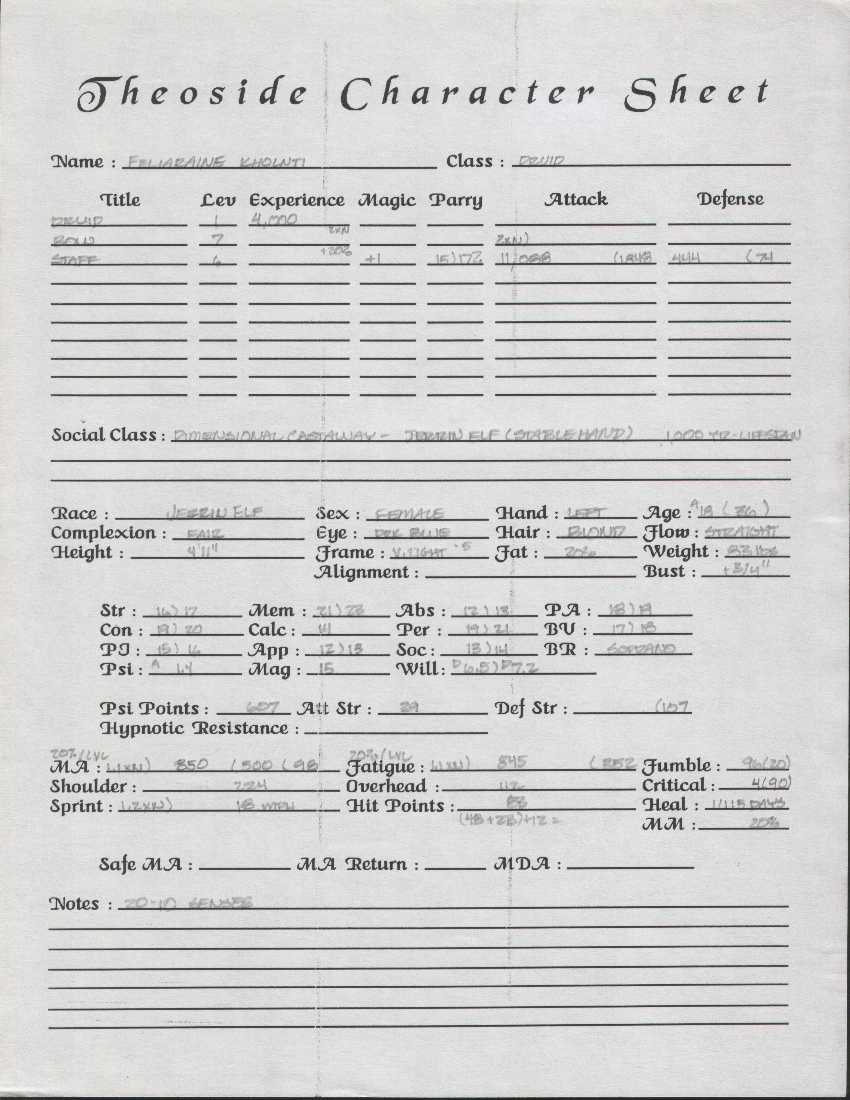 Theoside Character Sheet
Name : FELIARAINE KHOLINTI Class : DRUID
Title Lev Experience Magic Parry Attack Defense
DRUID 1 4,000
BOW 7 2XN 2XN)
STAFF 6 +20% +1 15)172 11,088 (1848 444 (74
Social Class : DIMENSIONAL CASTAWAY - JERRIN ELF (STABLE HAND) 1,000 YR-LIFESPAN
Race : JERRIN ELF Sex : FEMALE Hand : LEFT Age : A18 (36)
Complexion : FAIR Eye : DRK BLUE Hair : BLOND Flow : STRAIGHT
Height : 4'11" Frame : V.LIGHT -5 Fat : 20% Weight : 83 lbs
Alignment : Bust : +3/4"
Str : 16)17 Mem : 21)23 Abs : 12)13 PA : 18)19
Con : 19)20 Calc : 14 Per : 19)21 BV : 17)18
PI : 15)16 App : 12)13 Soc : 13)14 BR : SOPRANO
Psi : A 1.4 Mag : 15 Will : D6.5)D7.2
Psi Points : 607 Att Str : 39 Def Str : (107
Hypnotic Resistance :
20%/LVL 20%/LVL
MA : 1.1XN) 850 (500 (98 Fatigue : 1.1XN) 845 (252 Fumble : 96(20)
Shoulder : 224 Overhead : 112 Critical : 4(90)
Sprint : 1.2XN) 18 MPH Hit Points : 88 Heal : 1/1.15 DAYS
(48+28)+12= MM : 20%
Safe MA : MA Return : MDA :
Notes : 20-10 SENSES